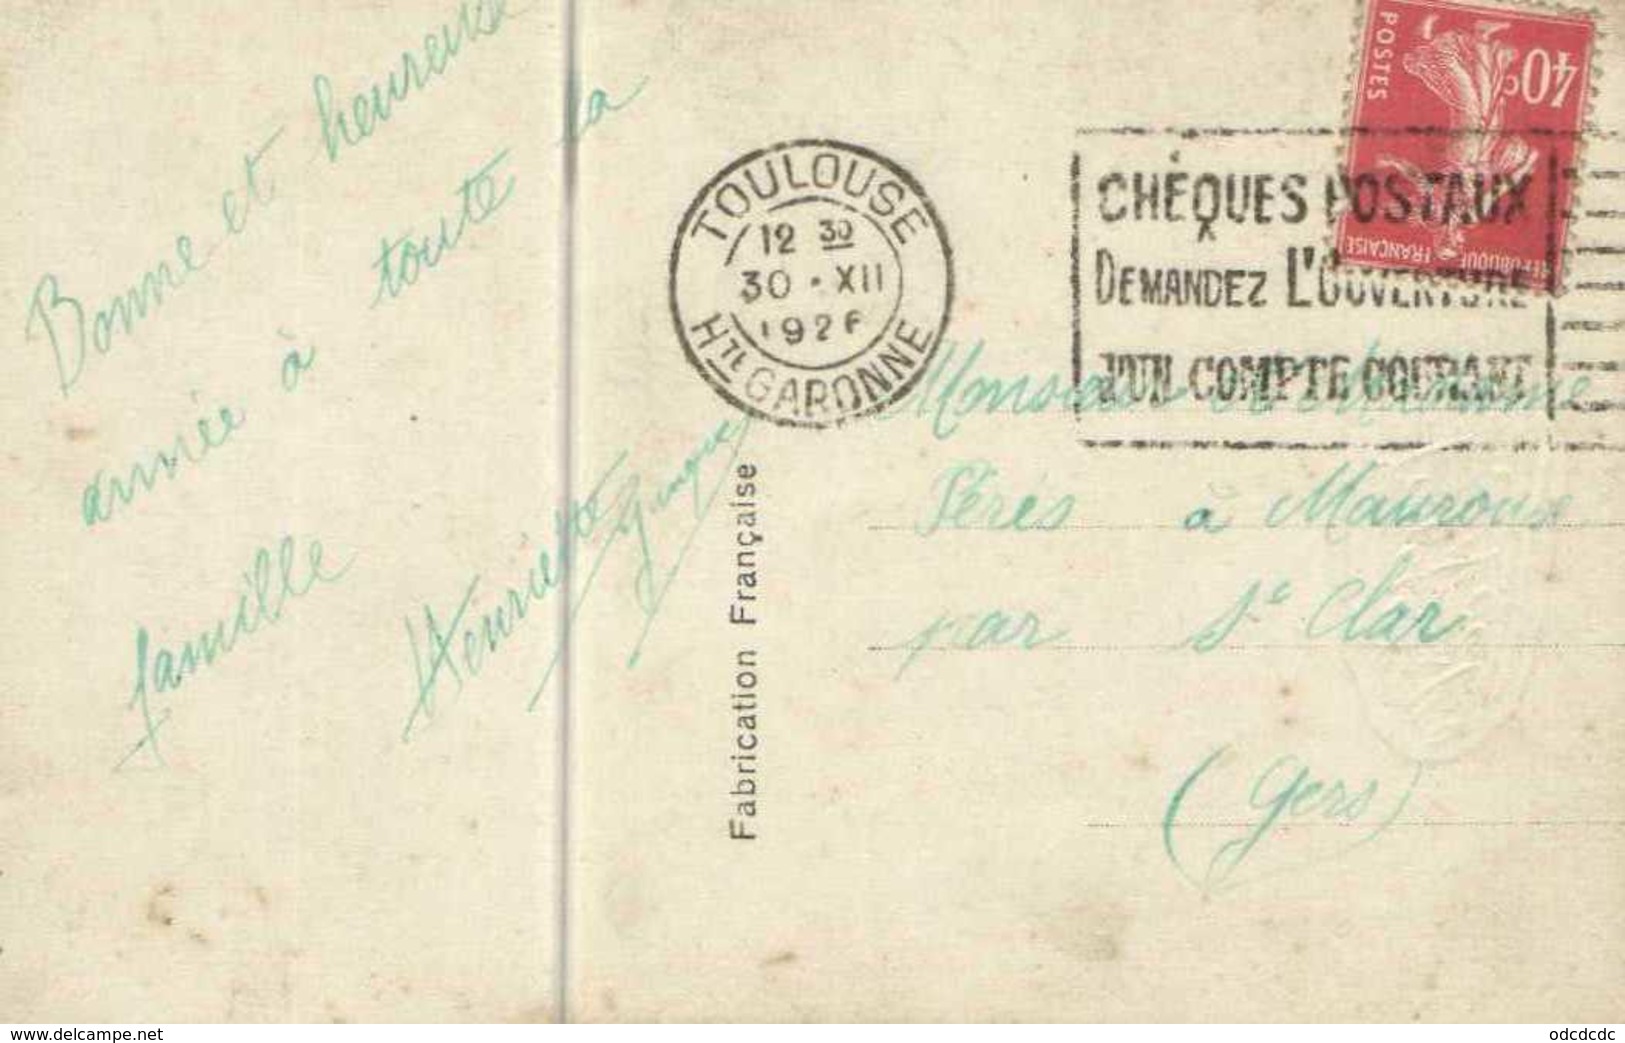 Bonne et heureuse
année à toute la
famille
Henriette
TOULOUSE
12 30
30 • XII
1926
Hte GARONNE
CHÉQUES POSTAUX
DEMANDEZ L'OUVERTURE
D'UN COMPTE COURANT
40c
POSTES
REPUBLIQUE FRANÇAISE
Fabrication Française
Monsieur et Madame
Pérès à Mauroux
par St Clar
(Gers)
www.delcampe.net
odcdcdc